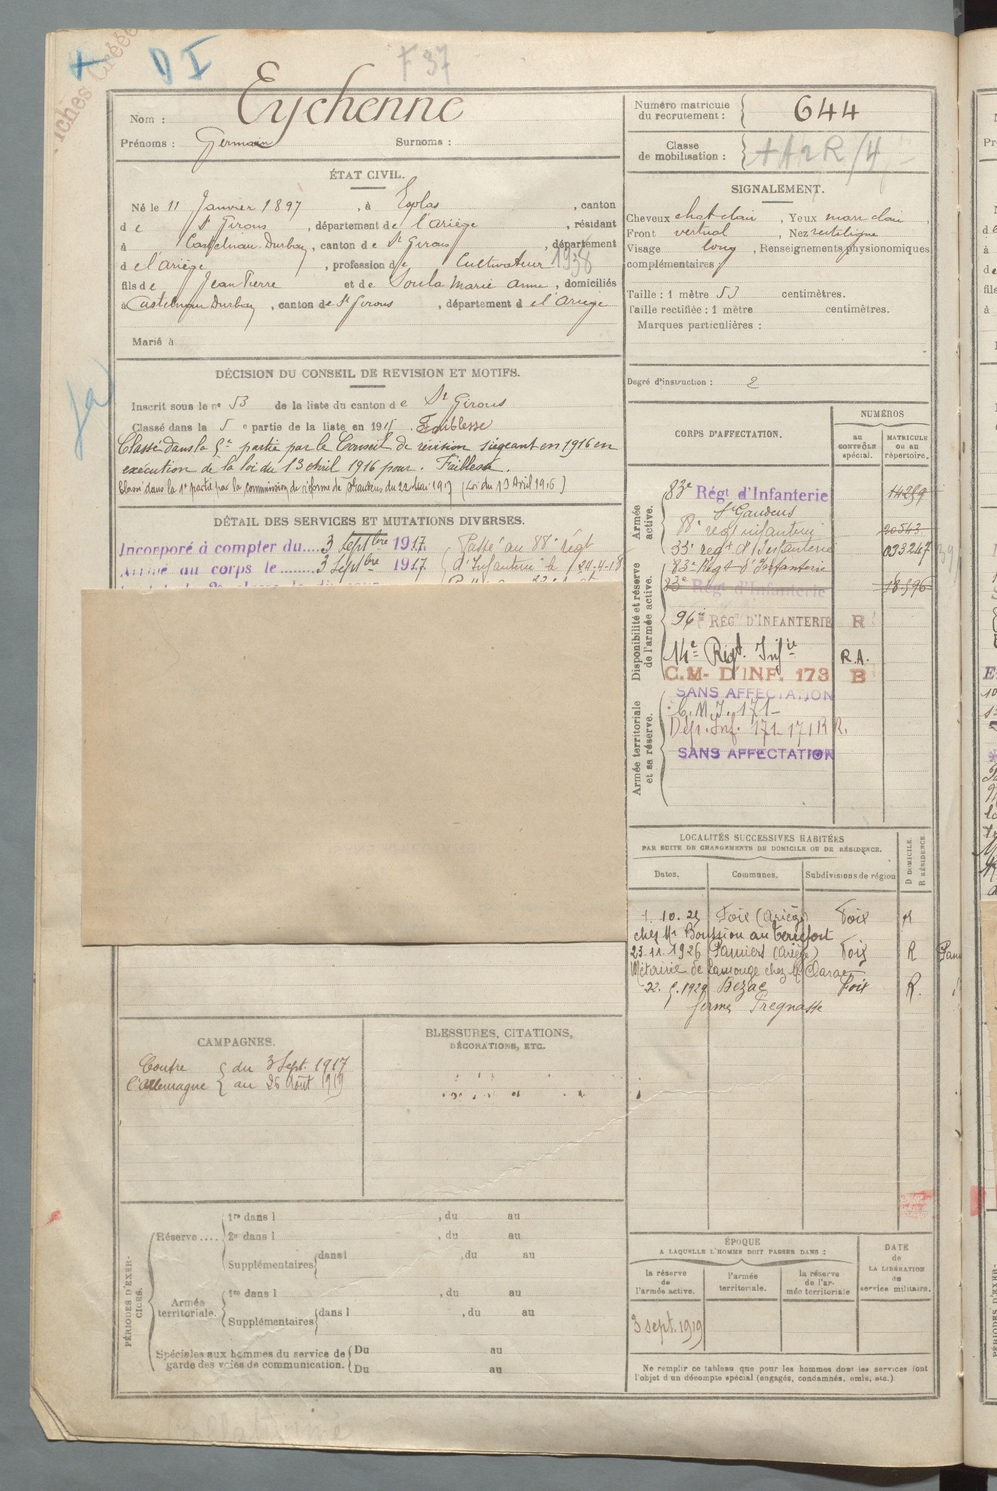 D I
F 37
Nom : Eychenne
Prénoms : Germain Surnoms :
Numéro matricule du recrutement : 644
Classe de mobilisation :
ÉTAT CIVIL.
Né le 11 Janvier 1897, à Esplas, canton
d e St Girons, département de l'ariège, résidant
à Castelnau Durban, canton de St Girons, département
d el'ariège, profession de Cultivateur 1938
fils de Jean Pierre et de Soula Marie Anne, domiciliés
à Castelnau Durban, canton de St Girons, département d el'ariège
Marié à
SIGNALEMENT.
Cheveux chat clair, Yeux marr clair,
Front vertical, Nez rectiligne
Visage long, Renseignements physionomiques
complémentaires :
Taille : 1 mètre 53 centimètres.
Taille rectifiée : 1 mètre centimètres.
Marques particulières :
Degré d'instruction : 2
DÉCISION DU CONSEIL DE REVISION ET MOTIFS.
Inscrit sous le no 53 de la liste du canton d e St Girons
Classé dans la 5 e partie de la liste en 191 . Faiblesse
Classé dans la 5e partie par le Conseil de révision siégeant en 1916 en
exécution de la loi du 13 avril 1916 pour . Faiblesse.
Classé dans la 1e partie par la commission de réforme de St Gaudens du 22 Mai 1917 (Loi du 13 Avril 1916)
DÉTAIL DES SERVICES ET MUTATIONS DIVERSES.
Incorporé à compter du.... 3 Septbre 1917. Passé au 88e régt
Arrivé au corps le ........ 3 Septbre 1917 d'Infanterie le 24-4-18
CORPS D'AFFECTATION.
NUMÉROS
au contrôle spécial.
MATRICULE ou au répertoire.
Armée active.
83e Régt d'Infanterie 14259
St Gaudens
88e regt infanterie 20543
33e regt d'Infanterie 023247
Disponibilité et réserve de l'armée active.
83e Regt d'Infanterie
83e Régt d'Infanterie 18596
96e RÉGt D'INFANTERIE R
14e Régt. Infie R.A.
C.M- D'INF. 173 B
SANS AFFECTATION
Armée territoriale et sa réserve.
C. M. I. 171
Dép. Inf. 171 171 R R.
SANS AFFECTATION
LOCALITÉS SUCCESSIVES HABITÉES
PAR SUITE DE CHANGEMENTS DE DOMICILE OU DE RÉSIDENCE.
Dates. Communes. Subdivisions de région D DOMICILE. R RÉSIDENCE.
1. 10. 21 Foix (Ariège) Foix R
chez Mr Boussion au
23.11.1926 Pamiers (Ariège) Foix R
Métairie de Lamouge chez Mr
22. 5.1929 Bézac Foix R.
ferme Pregnasse
CAMPAGNES.
Contre l'Allemagne { du 3 Sept. 1917
au 26 Août 1919
BLESSURES, CITATIONS,
DÉCORATIONS, ETC.
PÉRIODES D'EXERCICES.
Réserve ..... 1re dans l , du au
2e dans l , du au
Supplémentaires dans l , du au
Armée territoriale. 1re dans l , du au
Supplémentaires dans l , du au
Spéciales aux hommes du service de garde des voies de communication. Du au
Du au
ÉPOQUE
A LAQUELLE L'HOMME DOIT PASSER DANS :
la réserve de l'armée active.
l'armée territoriale.
la réserve de l'armée territoriale
DATE de LA LIBÉRATION du service militaire.
3 sept. 1919
Ne remplir ce tableau que pour les hommes dont les services font
l'objet d'un décompte spécial (engagés, condamnés, omis, etc.).